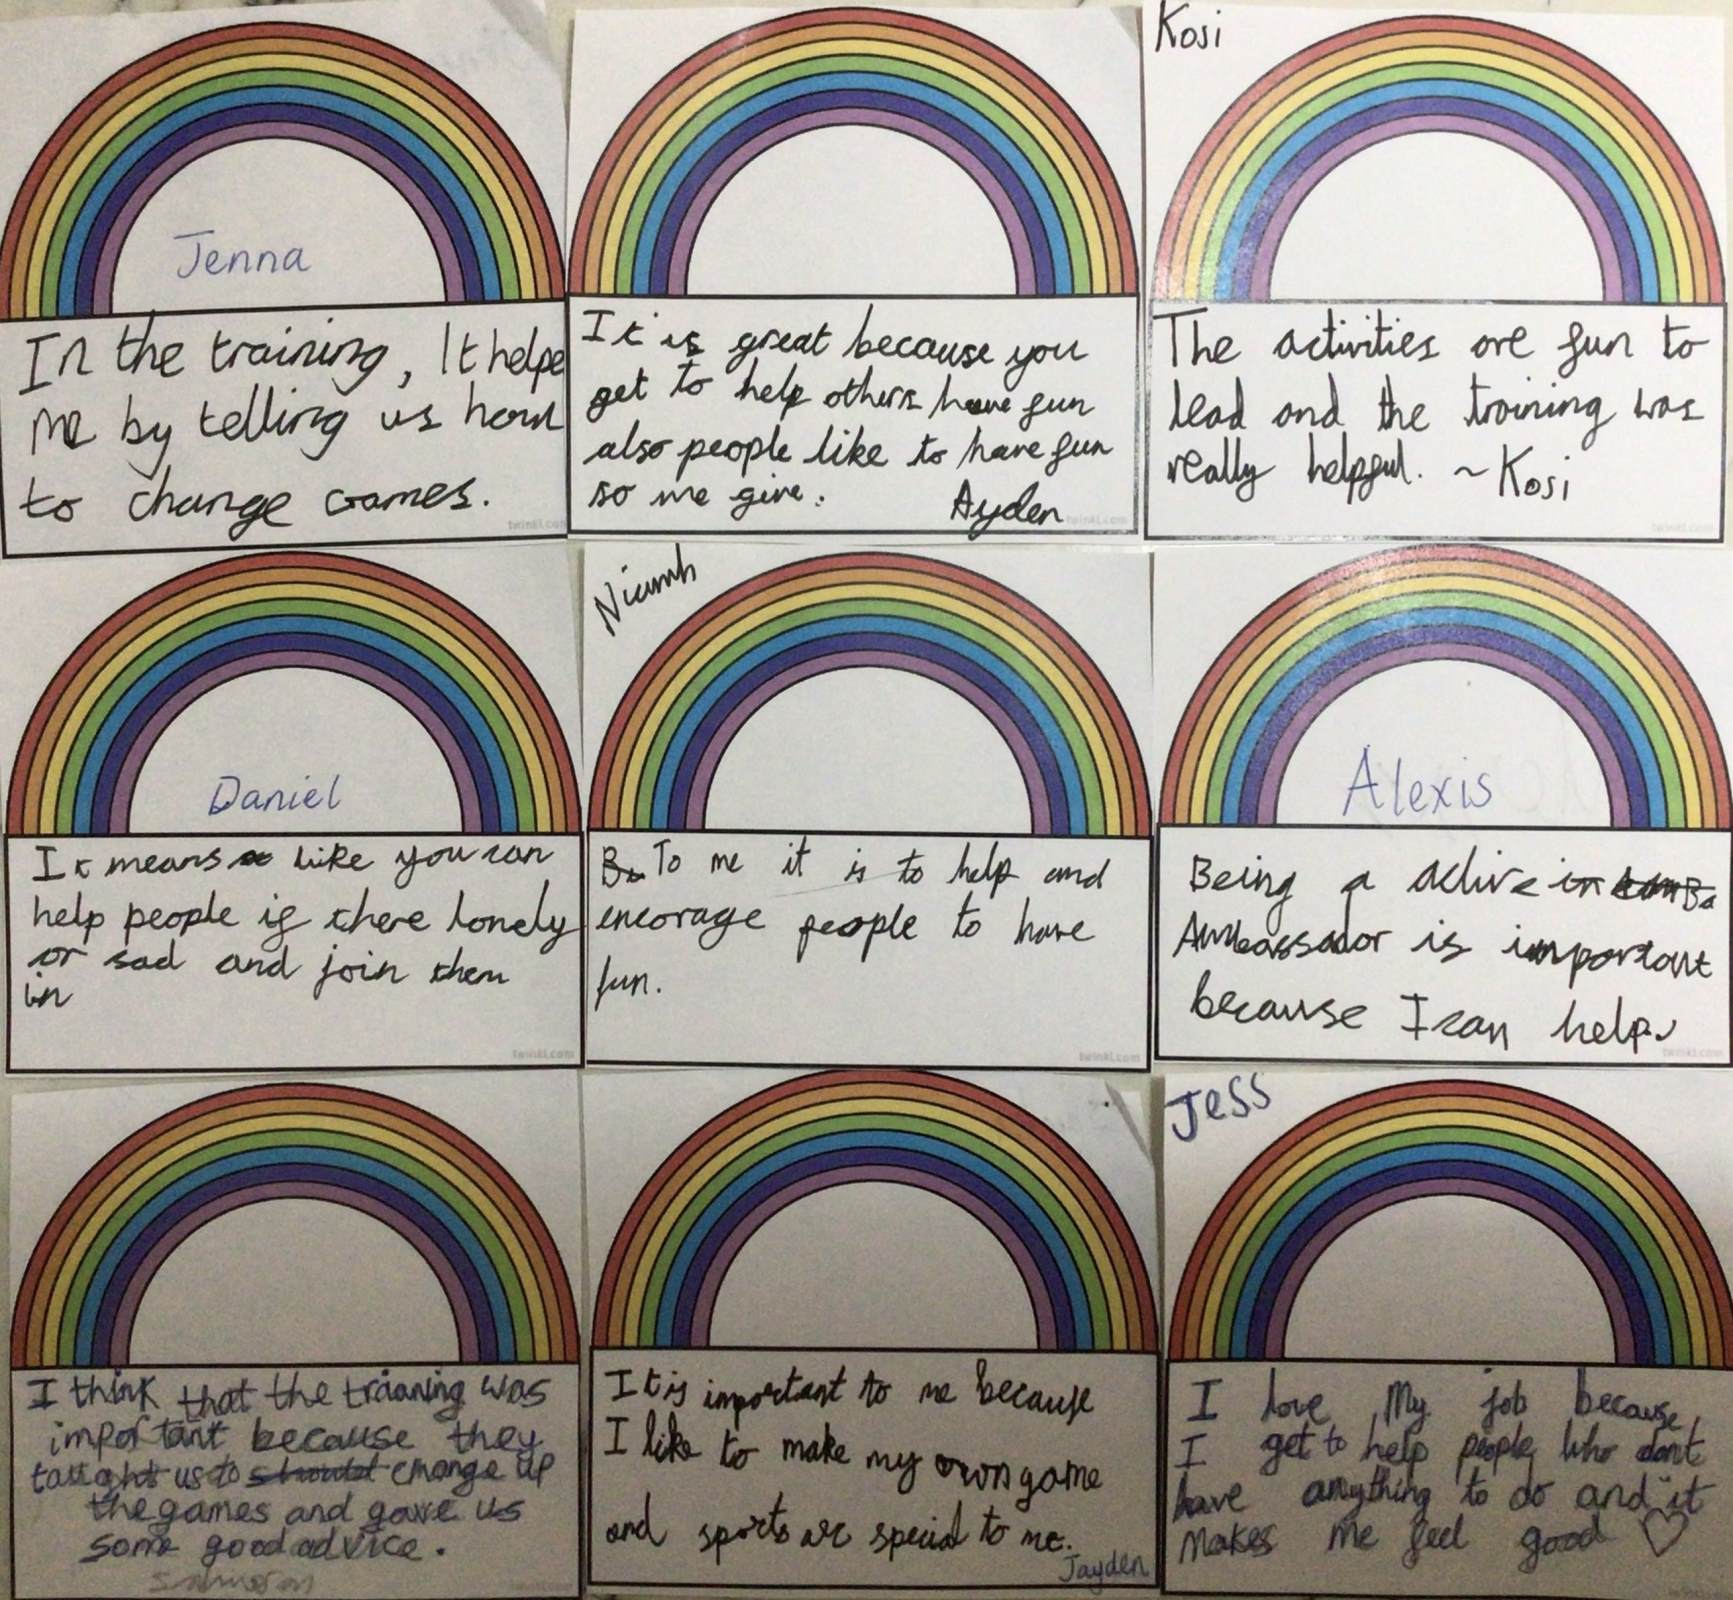 Jenna
In the training, It helpe
me by telling us how
to change Games.
twinkl.com
It is great because you
get to help others have fun
also people like to have fun
so we give.
Ayden
twinkl.com
Kosi
The activities are fun to
lead and the training was
really helpful. ~ Kosi
twinkl.com
Daniel
It means like you can
help people if there lonely
or sad and join them
in
twinkl.com
Niamh
To me it is to help and
encorage people to have
fun.
twinkl.com
Alexis
Being a active
Ambassador is important
because I can help.
twinkl.com
I think that the traaning was
important because they
taught us to change up
the games and gave us
some good advice.
It is important to me because
I like to make my own game
and sports are special to me.
Jayden
Jess
I love My job because
I get to help people who dont
have anything to do and it
makes me feel good ♡